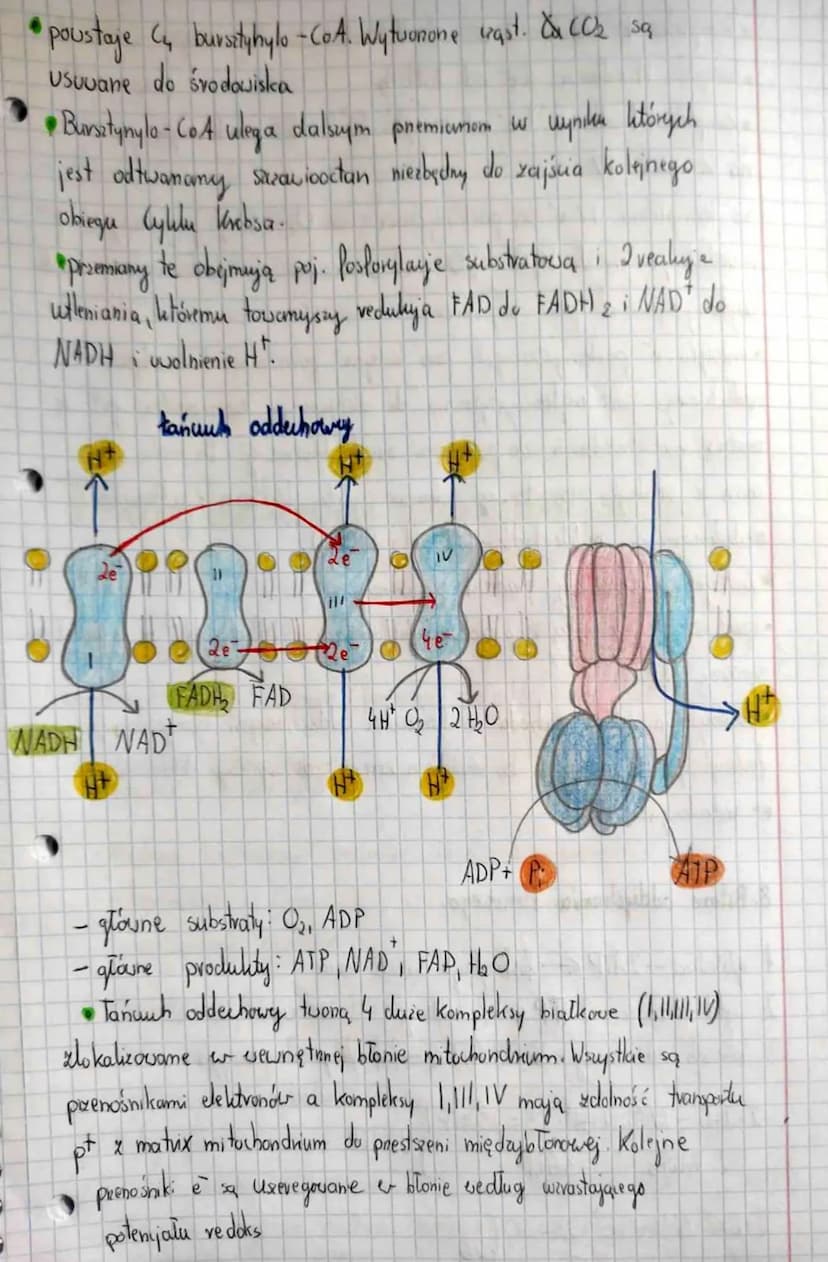 powstaje C4 bursztynylo-CoA. Wytworzone cząst. CO2 są
usuwane do środowiska
Bursztynylo-CoA ulega dalszym przemianom w wyniku których
jest odtwarzany szczawiooctan niezbędny do zajścia kolejnego
obiegu Cyklu Krebsa.
przemiany te obejmują poj. fosforylację substratową i 2 reakcje
utleniania, któremu towarzyszy redukcja FAD do FADH2 i NAD+ do
NADH i uwolnienie H+.
łańcuch oddechowy
H+ H+ H+
2e- II 2e- IV
III
I 2e- 2e- 4e-
FADH2 FAD
4H+ O2 2H2O H+
NADH NAD+
H+ H+ H+
ADP+ Pi ATP
- główne substraty: O2, ADP
- główne produkty: ATP, NAD+, FAD, H2O
Łańcuch oddechowy tworzą 4 duże kompleksy białkowe (I,II,III,IV)
zlokalizowane w wewnętrznej błonie mitochondrium. Wszystkie są
przenośnikami elektronów a kompleksy I,III,IV mają zdolność transportu
p+ z matrix mitochondrium do przestrzeni międzybłonowej. Kolejne
przenośniki e- są uszeregowane w błonie według wzrastającego
potencjału redoks